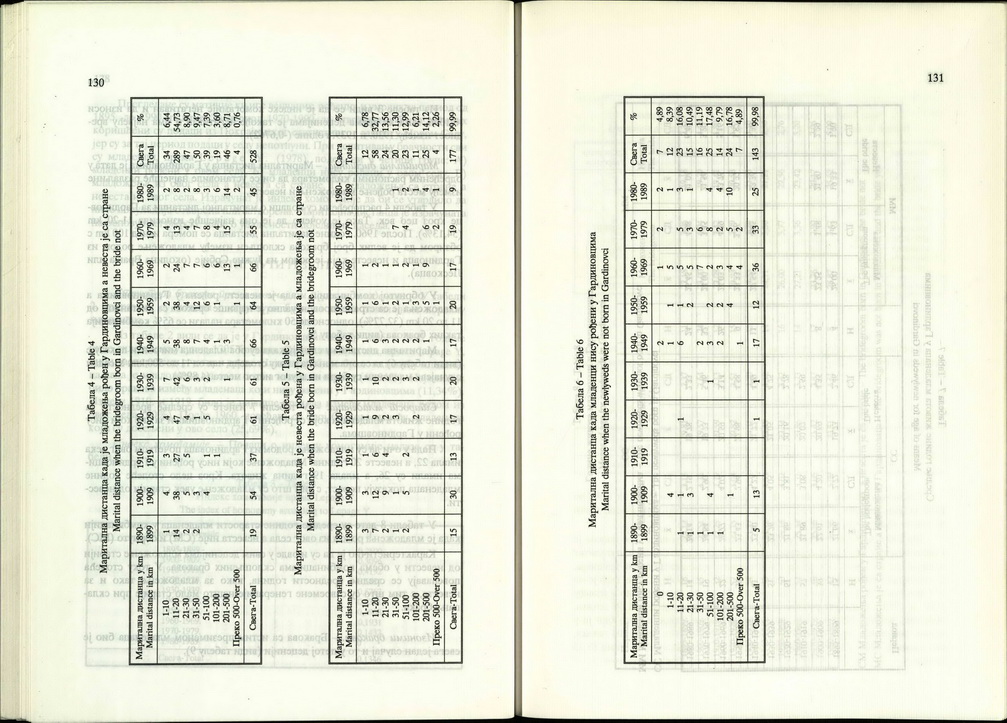 130
Табела 4 – Table 4
Маритална дистанца када је младожења рођен у Гардиновцима а невеста је са стране
Marital distance when the bridegroom born in Gardinovci and the bride not
Маритална дистанца у km 1890- 1900- 1910- 1920- 1930- 1940- 1950- 1960- 1970- 1980- Свега %
Marital distance in km 1899 1909 1919 1929 1939 1949 1959 1969 1979 1989 Total
1-10 1 4 3 4 7 5 2 2 4 2 34 6,44
11-20 14 38 27 47 42 38 38 24 13 8 289 54,73
21-30 2 5 5 4 6 8 4 7 4 2 47 8,90
31-50 2 3 1 3 7 12 7 7 8 50 9,47
51-100 4 1 5 2 4 6 6 8 3 39 7,39
101-200 1 1 1 6 4 6 19 3,60
201-500 1 3 13 15 14 46 8,71
Преко 500-Over 500 1 1 2 4 0,76
Свега-Total 19 54 37 61 61 66 64 66 55 45 528
Табела 5 – Table 5
Маритална дистанца када је невеста рођена у Гардиновцима а младожења је са стране
Marital distance when the bride born in Gardinovci and the bridegroom not
Маритална дистанца у km 1890- 1900- 1910- 1920- 1930- 1940- 1950- 1960- 1970- 1980- Свега %
Marital distance in km 1899 1909 1919 1929 1939 1949 1959 1969 1979 1989 Total
1-10 3 3 1 1 1 1 1 1 12 6,78
11-20 7 12 6 9 10 6 6 2 58 32,77
21-30 2 9 4 2 2 3 1 1 24 13,56
31-50 1 1 3 2 2 2 1 7 1 20 11,30
51-100 2 5 2 3 2 2 1 4 2 23 12,99
101-200 2 2 2 3 1 1 11 6,21
201-500 1 5 9 6 4 25 14,12
Преко 500-Over 500 1 2 1 4 2,26
Свега-Total 15 30 13 17 20 17 20 17 19 9 177 99,99
131
Табела 6 – Table 6
Маритална дистанца када младенци нису рођени у Гардиновцима
Marital distance when the newlyweds were not born in Gardinovci
Маритална дистанца у km 1890- 1900- 1910- 1920- 1930- 1940- 1950- 1960- 1970- 1980- Свега %
Marital distance in km 1899 1909 1919 1929 1939 1949 1959 1969 1979 1989 Total
0 2 1 2 2 7 4,89
1-10 4 1 1 5 1 12 8,39
11-20 1 1 1 6 1 5 5 3 23 16,08
21-30 1 3 2 5 3 1 15 10,49
31-50 1 2 7 6 16 11,19
51-100 1 4 1 3 2 2 8 4 25 17,48
101-200 1 2 2 3 2 4 14 9,79
201-500 1 4 4 5 10 24 16,78
Преко 500-Over 500 1 4 2 7 4,89
Свега-Total 5 13 1 1 17 12 36 33 25 143 99,98